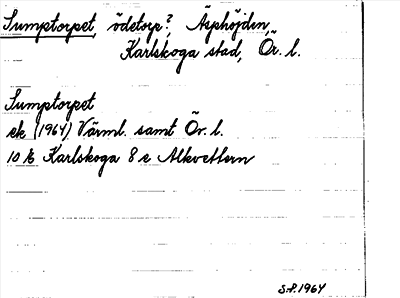 Sumptorpet, ödetorp?, Äsphöjden,
Karlskoga stad, Ör. l.
Sumptorpet
ek (1964) Värml. samt Ör. l.
10 E Karlskoga 8 e Alkvettern
S.P. 1964